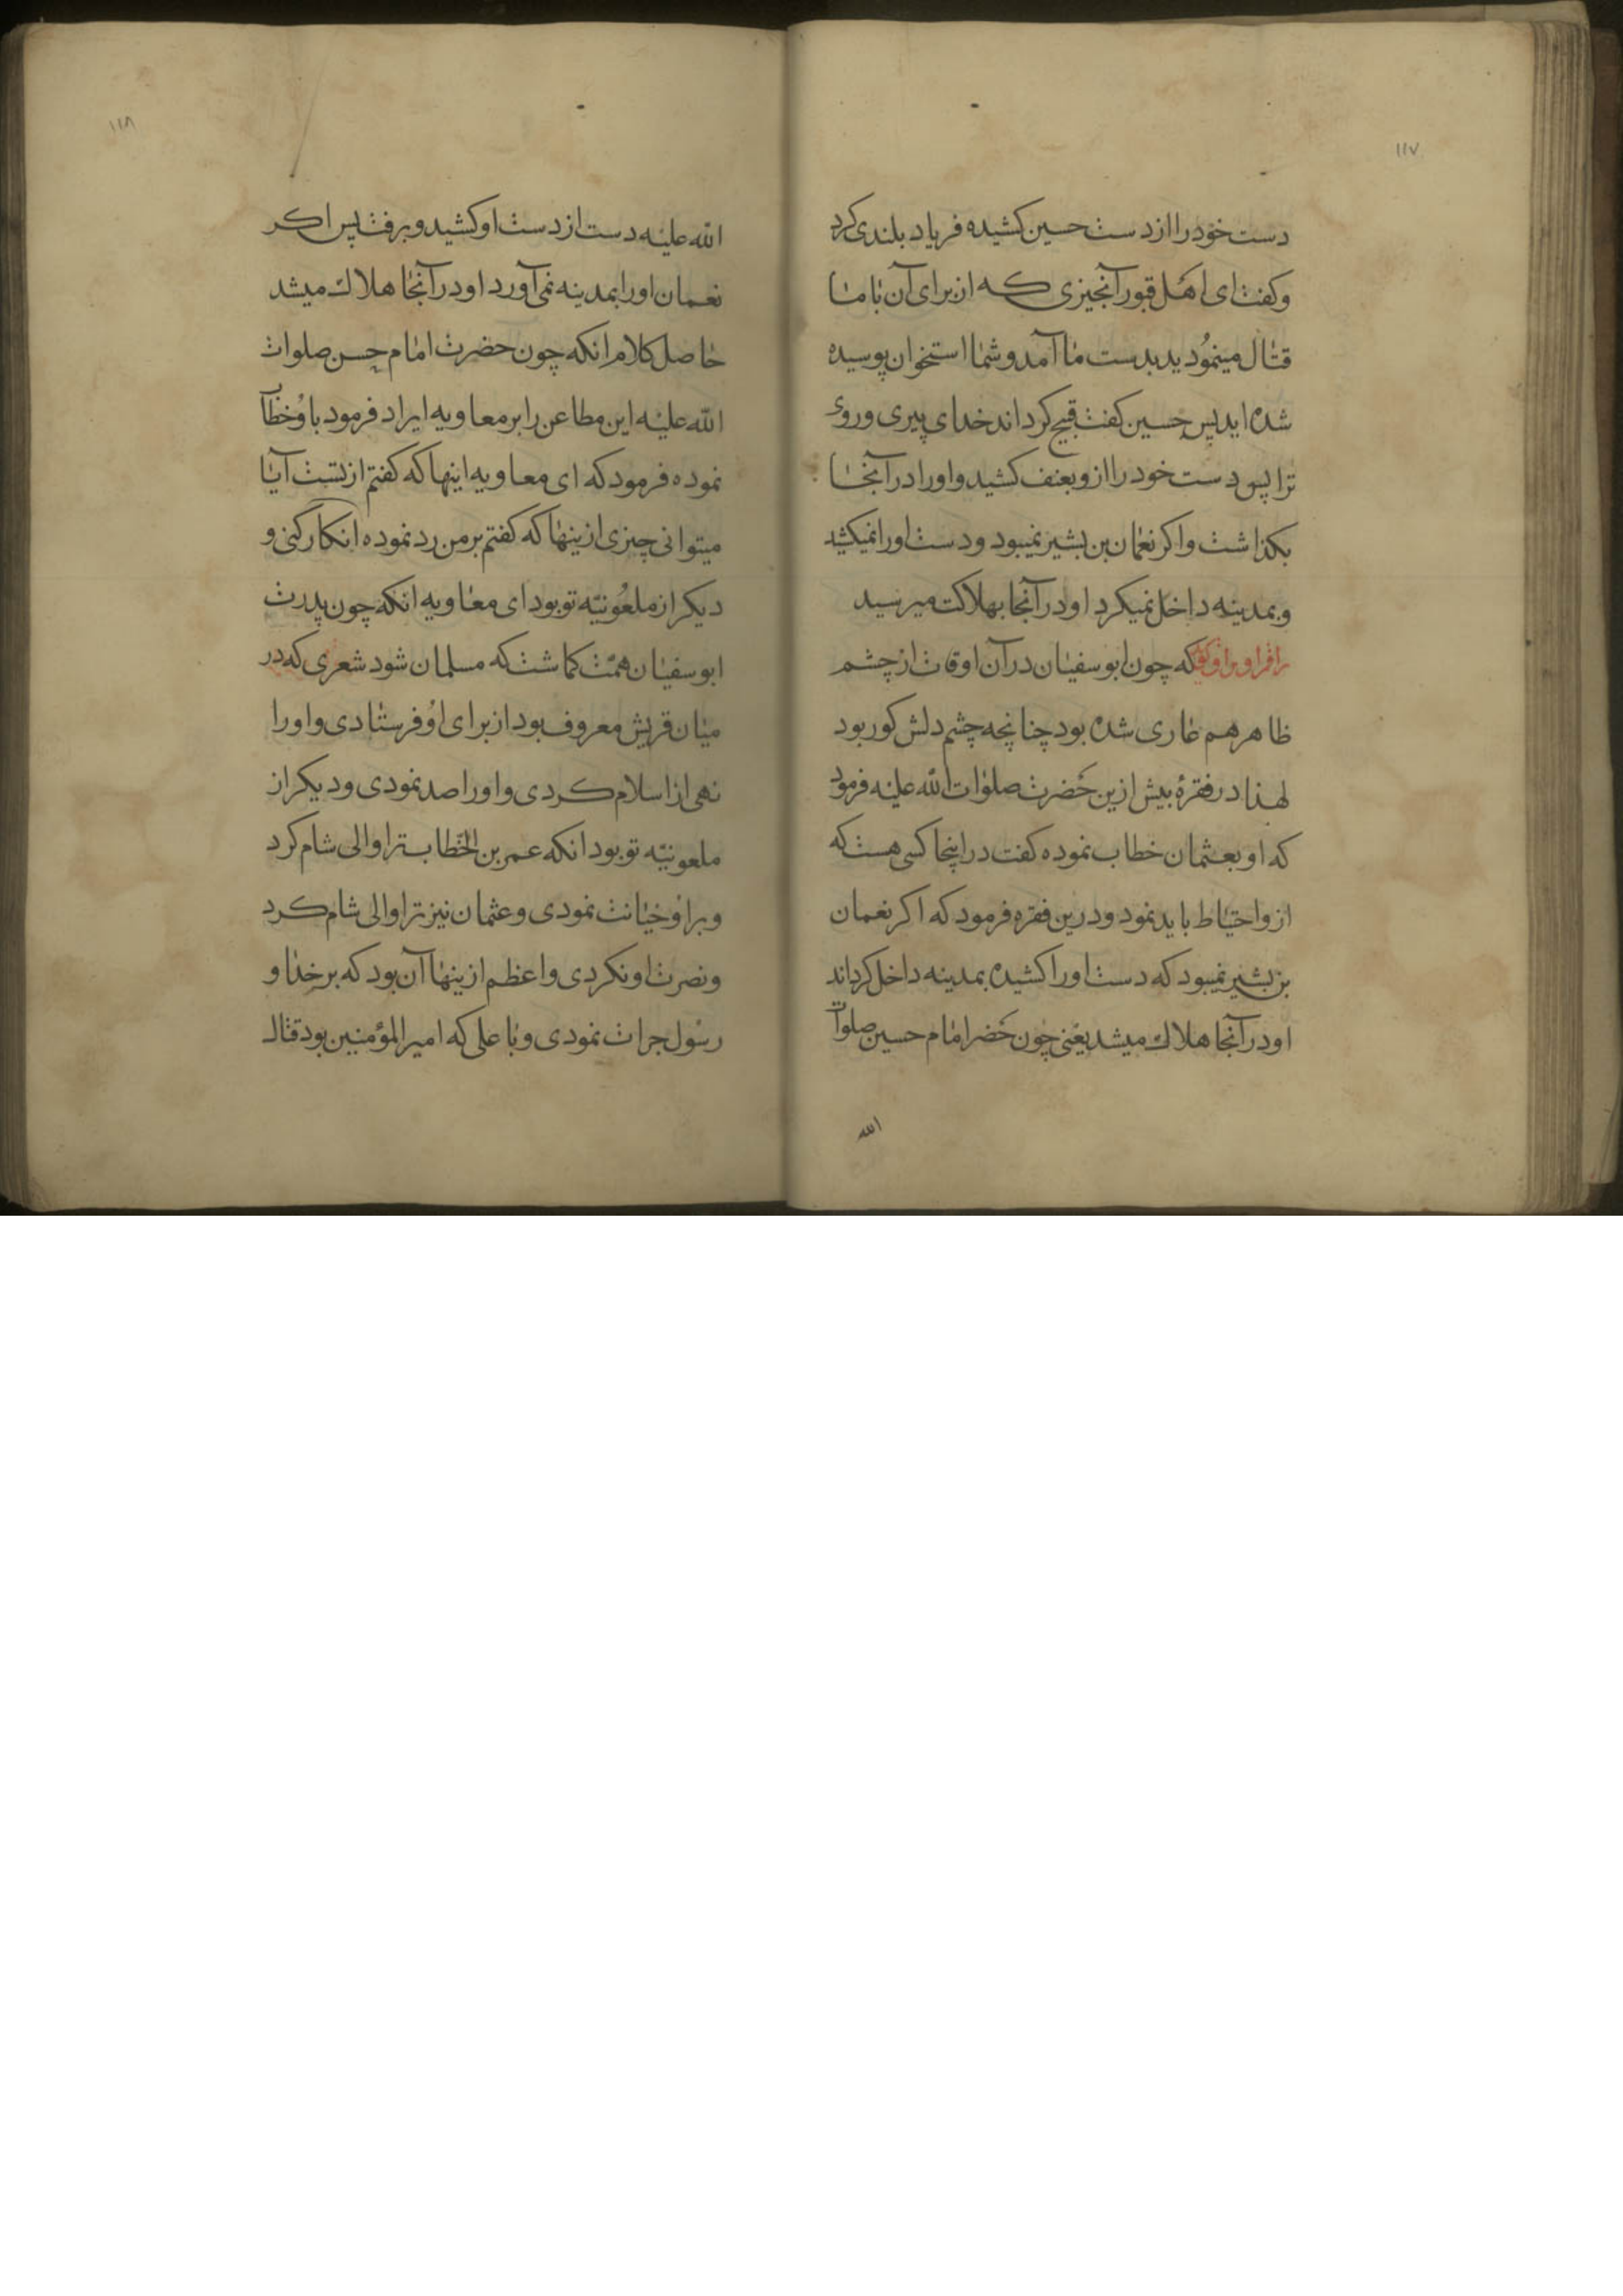 ۱۱۷
دست خود را از دست حسین کشیده فریاد بلندی کرد
و کفت ای اهل قبور آنجیزی که از برای آن با ما
قتال مینمودید بدست ما آمد و شما استخوان پوسیده
شده اید پس حسین کفت قبیح کرداند خدای پیری و روی
ترا پس دست خود را ازو بعنف کشید و او را در آنجا
بکذاشت و اکر نعمان بن بشیر نمیبود و دست او را نمیکشید
و بمدینه داخل نمیکرد او در آنجا بهلاکت میرسید
که چون ابو سفیان در آن اوقات از چشم
ظاهر هم عاری شده بود چنانچه چشم دلش کور بود
لهذا در فقرهٔ بیش ازین حضرت صلوات الله علیه فرمود
که او بعثمان خطاب نموده کفت در اینجا کسی هست که
ازو احتیاط باید نمود و درین فقره فرمود که اکر نعمان
بن بشیر نمیبود که دست او را کشیده بمدینه داخل کرداند
او در آنجا هلاك میشد یعنی چون حضر امام حسین صلوات
الله
۱۱۸
الله علیه دست از دست او کشید و برفت پس اکر
نعمان او را بمدینه نمی آورد او در آنجا هلاك میشد
حاصل کلام انکه چون حضرت امام حسن صلوات
الله علیه این مطاعن را بر معاویه ایراد فرمود باو خطاب
نموده فرمود که ای معاویه اینها که کفتم از تست آیا
میتوانی چیزی ازینها که کفتم بر من رد نموده انکار کنی و
دیکر از ملعونیّه تو بود ای معاویه انکه چون پدرت
ابو سفیان همّت کماشت که مسلمان شود شعری که در
میان قریش معروف بود از برای او فرستادی و او را
نهی از اسلام کردی و او را صد نمودی و دیکر از
ملعونیّه تو بود انکه عمر بن الخطاب ترا والی شام کرد
و برا و خیانت نمودی و عثمان نیز ترا والی شام کرد
و نصرت او نکردی و اعظم ازینها آن بود که بر خدا و
رسول جرات نمودی و با علی که امیر المؤمنین بود قتال